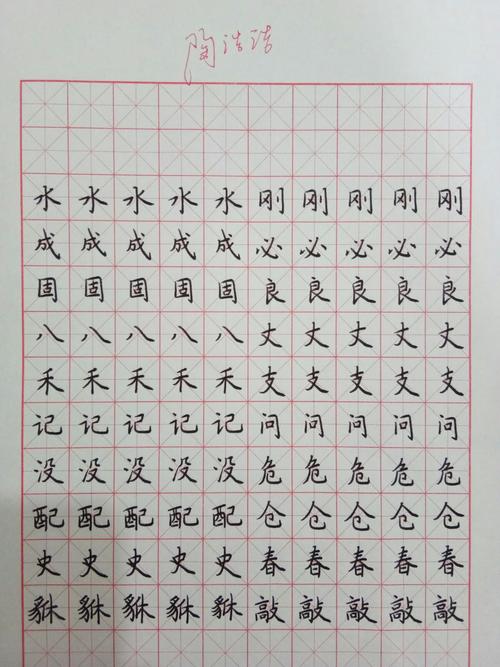 陶
水水水水水刚刚刚刚刚
成成成成成必必必必必
固固固固固良良良良良
八八八八八丈丈丈丈丈
禾禾禾禾禾支支支支支
记记记记记问问问问问
没没没没没危危危危危
配配配配配仓仓仓仓仓
史史史史史春春春春春
貅貅貅貅貅敲敲敲敲敲